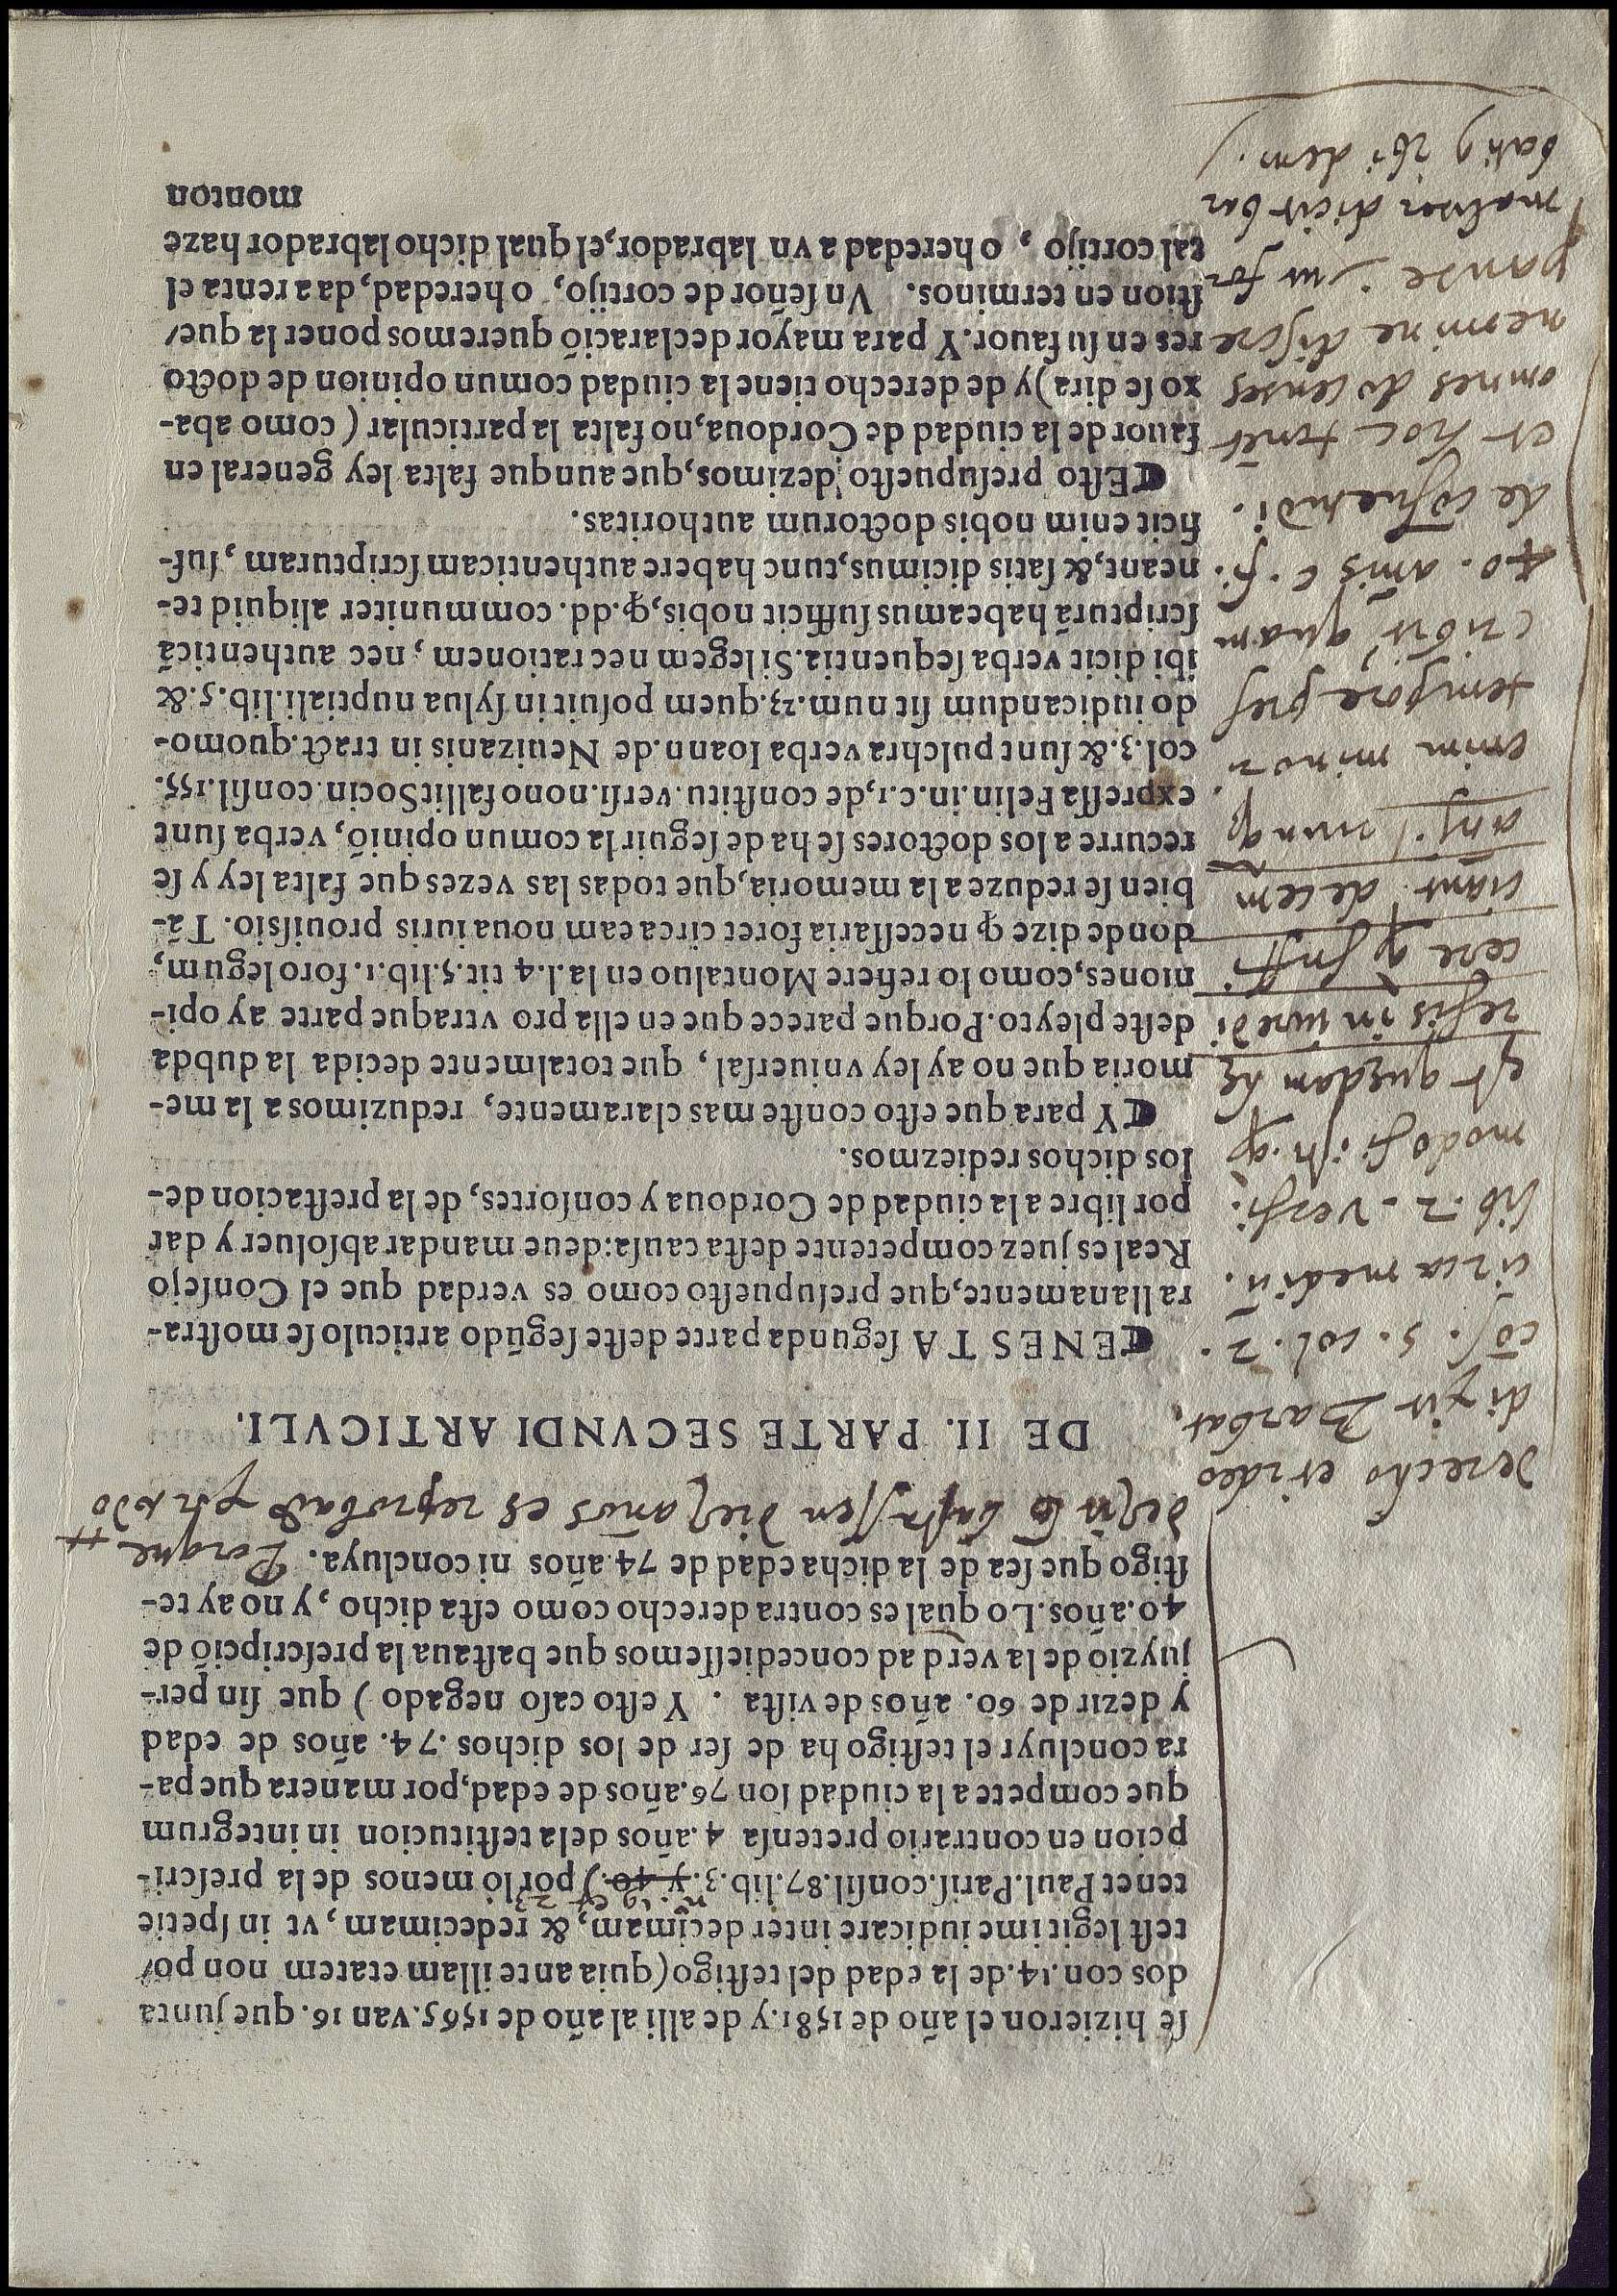 ſe hizieron el año de 1581. y de alli al año de 1565. van 16. que junta
dos con .14. de la edad del teſtigo (quia ante illam etatem non po/
teſt legitime iudicare inter decimam, & redecimam, vt in ſpetie
n. 19 et 23
tenet Paul. Pariſ. conſil. 87. lib. 3. y 40.) por lo menos de la preſcri-
pcion en contrario pretenſa 4. años dela teſtitucion in integrum
que compete a la ciudad ſon 76. años de edad, por manera que pa-
ra concluyr el teſtigo ha de ſer de los dichos .74. años de edad
y dezir de 60. años de viſta . Y eſto caſo negado ) que ſin per-
juyzio de la verdad concedieſſemos que baſtaua la preſcripciõ de
40. años. Lo qual es contra derecho como eſta dicho, y no ay te-
ſtigo que ſea de la dicha edad de 74. años ni concluya. Porque
en diez años es reprobado
DE II. PARTE SECVNDI ARTICVLI.
¶ EN ESTA ſegunda parte deſte ſegũdo articulo ſe moſtra-
ra llanamente, que preſupueſto como es verdad que el Conſejo
Real es juez competente deſta cauſa: deue mandar abſoluer y dar
por libre a la ciudad de Cordoua y conſortes, de la preſtacion de-
los dichos rediezmos.
¶ Y para que eſto conſte mas claramente, reduzimos a la me-
moria que no ay ley vniuerſal, que totalmente decida la dubda
deſte pleyto. Porque parece que en ella pro vtraque parte ay opi-
niones, como lo refiere Montaluo en la .l.4 tit.5. lib.1. foro legum,
donde dize ꝙ neceſſaria foret circa eam noua iuris prouiſsio. Tã-
bien ſe reduze a la memoria, que todas las vezes que falta ley y ſe
recurre a los doctores ſe ha de ſeguir la comun opiniõ, verba ſunt
expreſſa Felin. in. c.1, de conſtitu. verſi. nono fallit Socin. conſil. 155.
col.3. & ſunt pulchra verba Ioann. de Neuizanis in tract. quomo-
do iudicandum ſit num. 23. quem poſuit in ſylua nuptiali. lib. 5. &
ibi dicit verba ſequentia. Si legem nec rationem, nec authenticã
ſcripturã habeamus ſufficit nobis, ꝙ. dd. communiter aliquid te-
neant, & ſatis dicimus, tunc habere authenticam ſcripturam, ſuf-
ficit enim nobis doctorum authoritas.
¶ Eſto preſupueſto dezimos, que aunque falta ley general en
fauor de la ciudad de Cordoua, no falta la particular ( como aba-
xo ſe dira ) y de derecho tiene la ciudad comun opinion de docto
res en ſu fauor. Y para mayor declaraciõ queremos poner la que/
ſtion en terminos. Vn ſeñor de cortijo, o heredad, da a renta el
tal cortijo , o heredad a vn labrador, el qual dicho labrador haze
monton
derecho et ideo
dixit Barbat.
cõſ. 5. col. 2.
circa mediũ.
lib. 2. verſi.
modo
est quedam
in iure di
cere
decem
enim minor
tempore
quam
40. anis c. fi.
de cõſuetudi.
et hoc tenẽt
omnes docentes
nemine diſcre
pante
dicit bar
batꝯ ibidem.